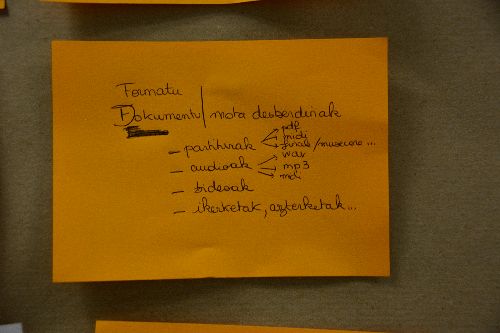 Formatu
Dokumentu / mota desberdinak
- partiturak → pdf
→ midi
→ finale / musescore ...
- audioak → wav
→ mp3
→ midi
- bideoak
- ikerketak, azterketak...